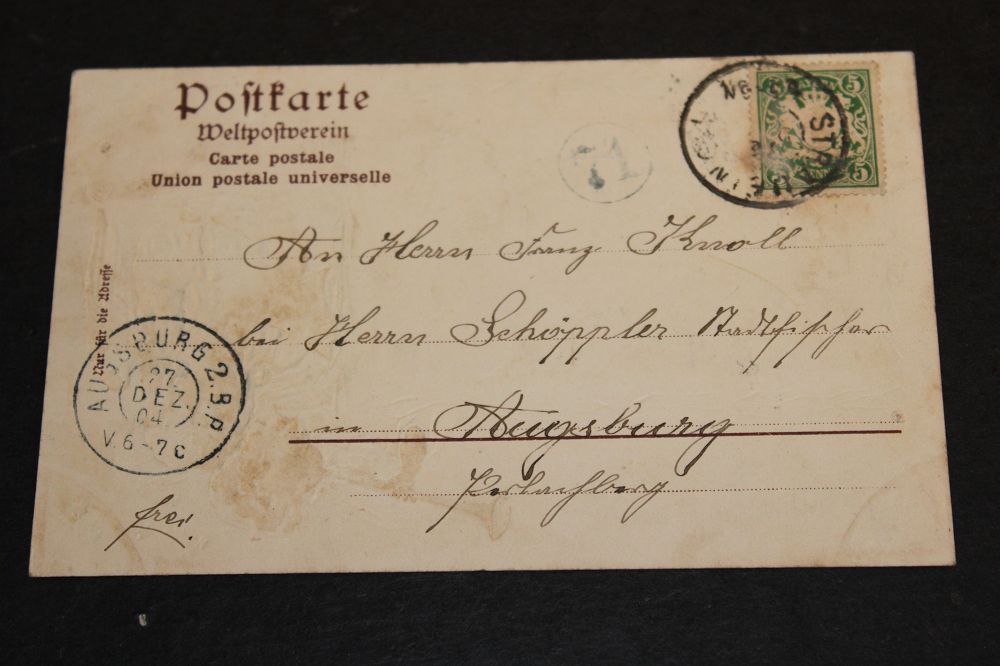 Postkarte
Weltpostverein
Carte postale
Union postale universelle
71
5 5
5
STRAUBING
Nur für die Adresse
An Herrn Franz Knoll
bei Herrn Schöppler Stadtfischer
in Augsburg
Perlachberg
frei.
AUGSBURG 2.B.P.
27.
DEZ.
04.
V.6-7C